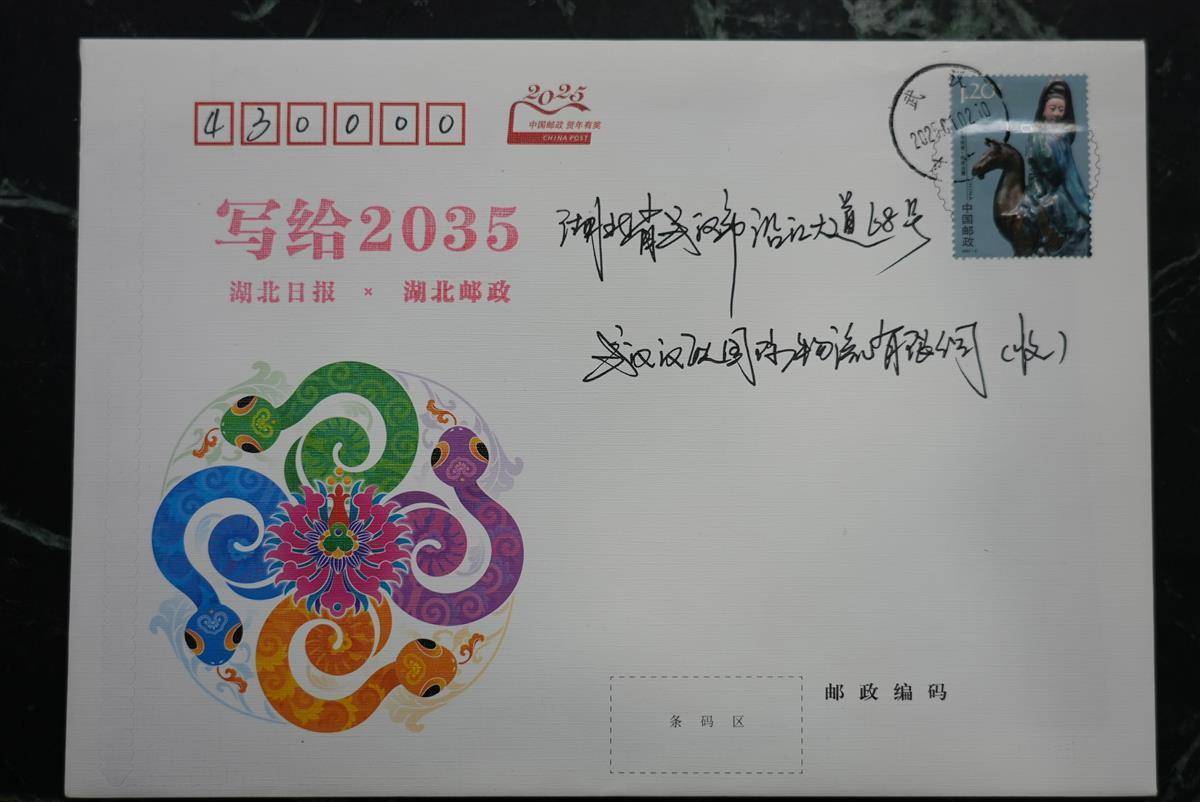 430000
2025
中国邮政 贺年有奖
CHINA POST
写给2035
湖北日报 × 湖北邮政
1.20
中国邮政
湖北省武汉市沿江大道68号
武汉汉欧国际物流有限公司(收)
条码区
邮政编码